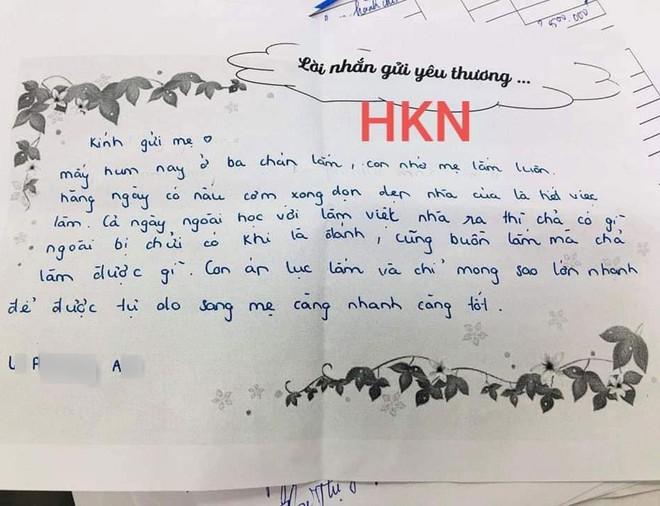 hành ch
2 500.000
Lời nhắn gửi yêu thương ...
HKN
Kính gửi mẹ ♡
mấy hum nay ở ba chán lắm, con nhớ mẹ lắm luôn.
hàng ngày có nấu cơm xong dọn dẹp nhà cửa là hết việc
làm. Cả ngày ngoài học với làm việt nhà ra thì chả có gì
ngoài bị chửi có khi là đánh, cũng buồn lắm mà chả
làm được gì. Con áp lực lắm và chỉ mong sao lớn nhanh
để được tự do sang mẹ càng nhanh càng tốt.
A